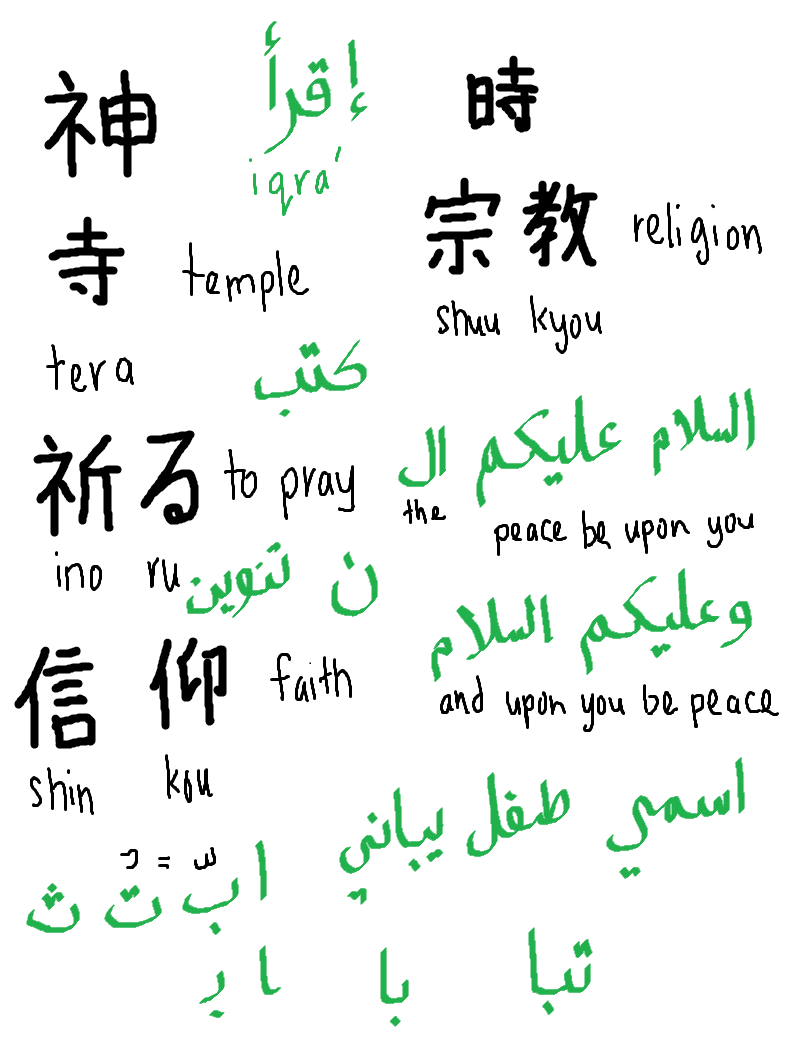 神 إقرأ 時
iqra'
宗教 religion
寺 temple
shuu kyou
tera
كتب
السلام عليكم ال
祈る to pray
the
peace be upon you
ino ru
ن تنوين
وعليكم السلام
信仰 faith
and upon you be peace
shin kou
اسمي طفل يباني
ا ب ت ث
تبا با ـا بـ